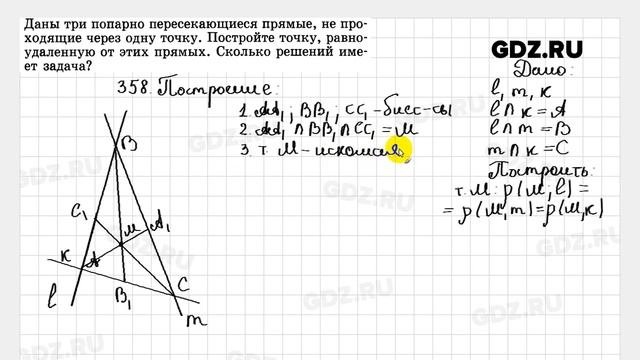 Даны три попарно пересекающиеся прямые, не про-
ходящие через одну точку. Постройте точку, равно-
удаленную от этих прямых. Сколько решений име-
ет задача?
GDZ.RU
358. Построение:
1. AA₁; BB₁; CC₁ – бисс-сы
2. AA₁ ∩ BB₁ ∩ CC₁ = M
3. т. M – искомая
Дано:
l, m, k
l ∩ k = A
l ∩ m = B
m ∩ k = C
Построить:
т. M: ρ(M, l) =
= ρ(M, m) = ρ(M, k)
B
C₁
M
A₁
K
A
l
B₁
C
m
GDZ.RU
GDZ.RU
GDZ.RU
GDZ.RU